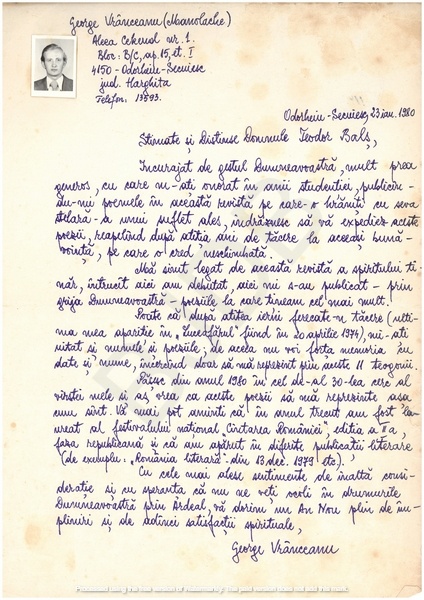 George Vrânceanu (Manolache)
Aleea Cekend nr. 1.
Bloc: B/C, ap. 15, et. I
4150 - Odorheiu-Secuiesc
jud. Harghita
Telefon: 13593.
Odorheiu-Secuiesc, 23 ian. 1980
Stimate și Distinse Domnule Teodor Balș,
Încurajat de gestul Dumneavoastră, mult prea
generos, cu care m-ați onorat în anii studenției, publicîn-
du-mi poemele în această revistă pe care-o hrăniți cu seva
stelară a unui suflet ales, îndrăznesc să vă expediez aceste
poezii, reapelînd după atîția ani de tăcere la aceeași bună-
voință, pe care o cred neschimbată.
Mă simt legat de această revistă a spiritului tî-
năr, întrucît aici am debutat, aici mi s-au publicat - prin
grija Dumneavoastră - poeziile la care țineam cel mai mult.
Poate că după atîtea ierni ferecate-n tăcere (ulti-
ma mea apariție în „Luceafărul" fiind în 20 aprilie 1974), mi-ați
uitat și numele și poeziile; de aceea nu voi forța memoria cu
date și nume, încercînd doar să mă reprezint prin aceste 11 teogonii.
Pășesc din anul 1980 în cel de-al 30-lea cerc al
vîrstei mele și aș vrea ca aceste poezii să mă reprezinte așa
cum sînt. Vă mai pot aminti că în anul trecut am fost lau-
reat al festivalului național „Cîntarea României", ediția a II-a,
faza republicană și că am apărut în diferite publicații literare
(de exemplu: „România literară" din 13 dec. 1979 etc).
Cu cele mai alese sentimente de înaltă consi-
derație și cu speranța că nu ne veți ocoli în drumurile
Dumneavoastră prin Ardeal, vă dorim un An Nou plin de îm-
pliniri și de adînci satisfacții spirituale,
George Vrânceanu